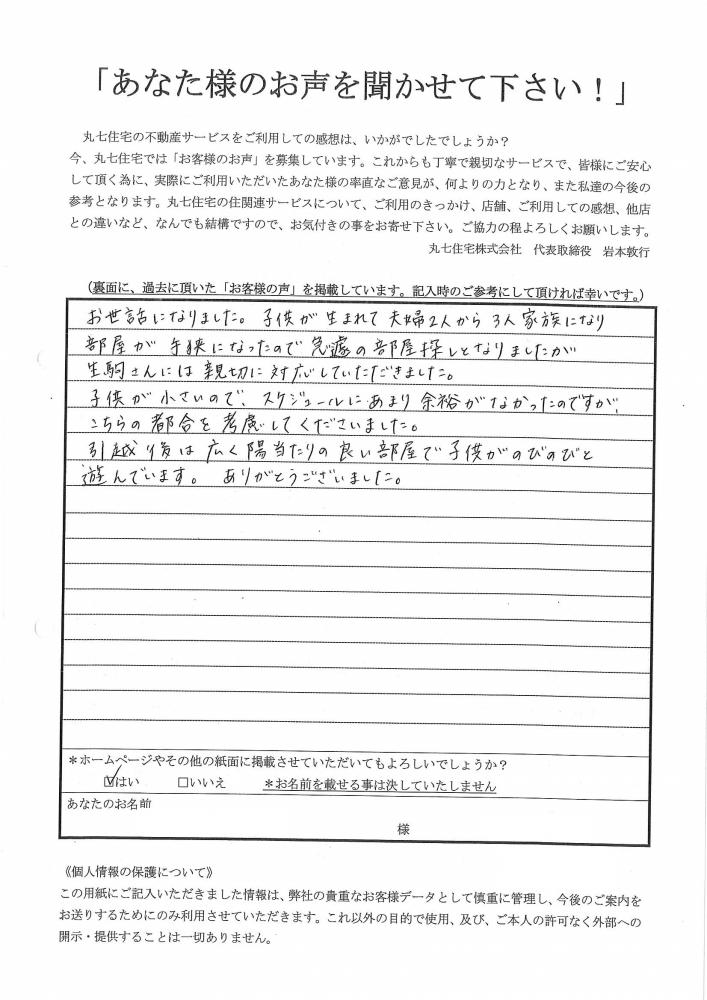 「あなた様のお声を聞かせて下さい！」
丸七住宅の不動産サービスをご利用しての感想は、いかがでしたでしょうか？
今、丸七住宅では「お客様のお声」を募集しています。これからも丁寧で親切なサービスで、皆様にご安心
して頂く為に、実際にご利用いただいたあなた様の率直なご意見が、何よりの力となり、また私達の今後の
参考となります。丸七住宅の住関連サービスについて、ご利用のきっかけ、店舗、ご利用しての感想、他店
との違いなど、なんでも結構ですので、お気付きの事をお寄せ下さい。ご協力の程よろしくお願いします。
丸七住宅株式会社　代表取締役　岩本敦行
（裏面に、過去に頂いた「お客様の声」を掲載しています。記入時のご参考にして頂ければ幸いです。）
お世話になりました。子供が生まれて夫婦2人から3人家族になり
部屋が手狭になったので急遽の部屋探しとなりましたが
生駒さんには親切に対応していただきました。
子供が小さいので、スケジュールにあまり余裕がなかったのですが、
こちらの都合を考慮してくださいました。
引越し後は広く陽当たりの良い部屋で子供がのびのびと
遊んでいます。ありがとうございました。
＊ホームページやその他の紙面に掲載させていただいてもよろしいでしょうか？
☑はい　□いいえ　＊お名前を載せる事は決していたしません
あなたのお名前
様
《個人情報の保護について》
この用紙にご記入いただきました情報は、弊社の貴重なお客様データとして慎重に管理し、今後のご案内を
お送りするためにのみ利用させていただきます。これ以外の目的で使用、及び、ご本人の許可なく外部への
開示・提供することは一切ありません。